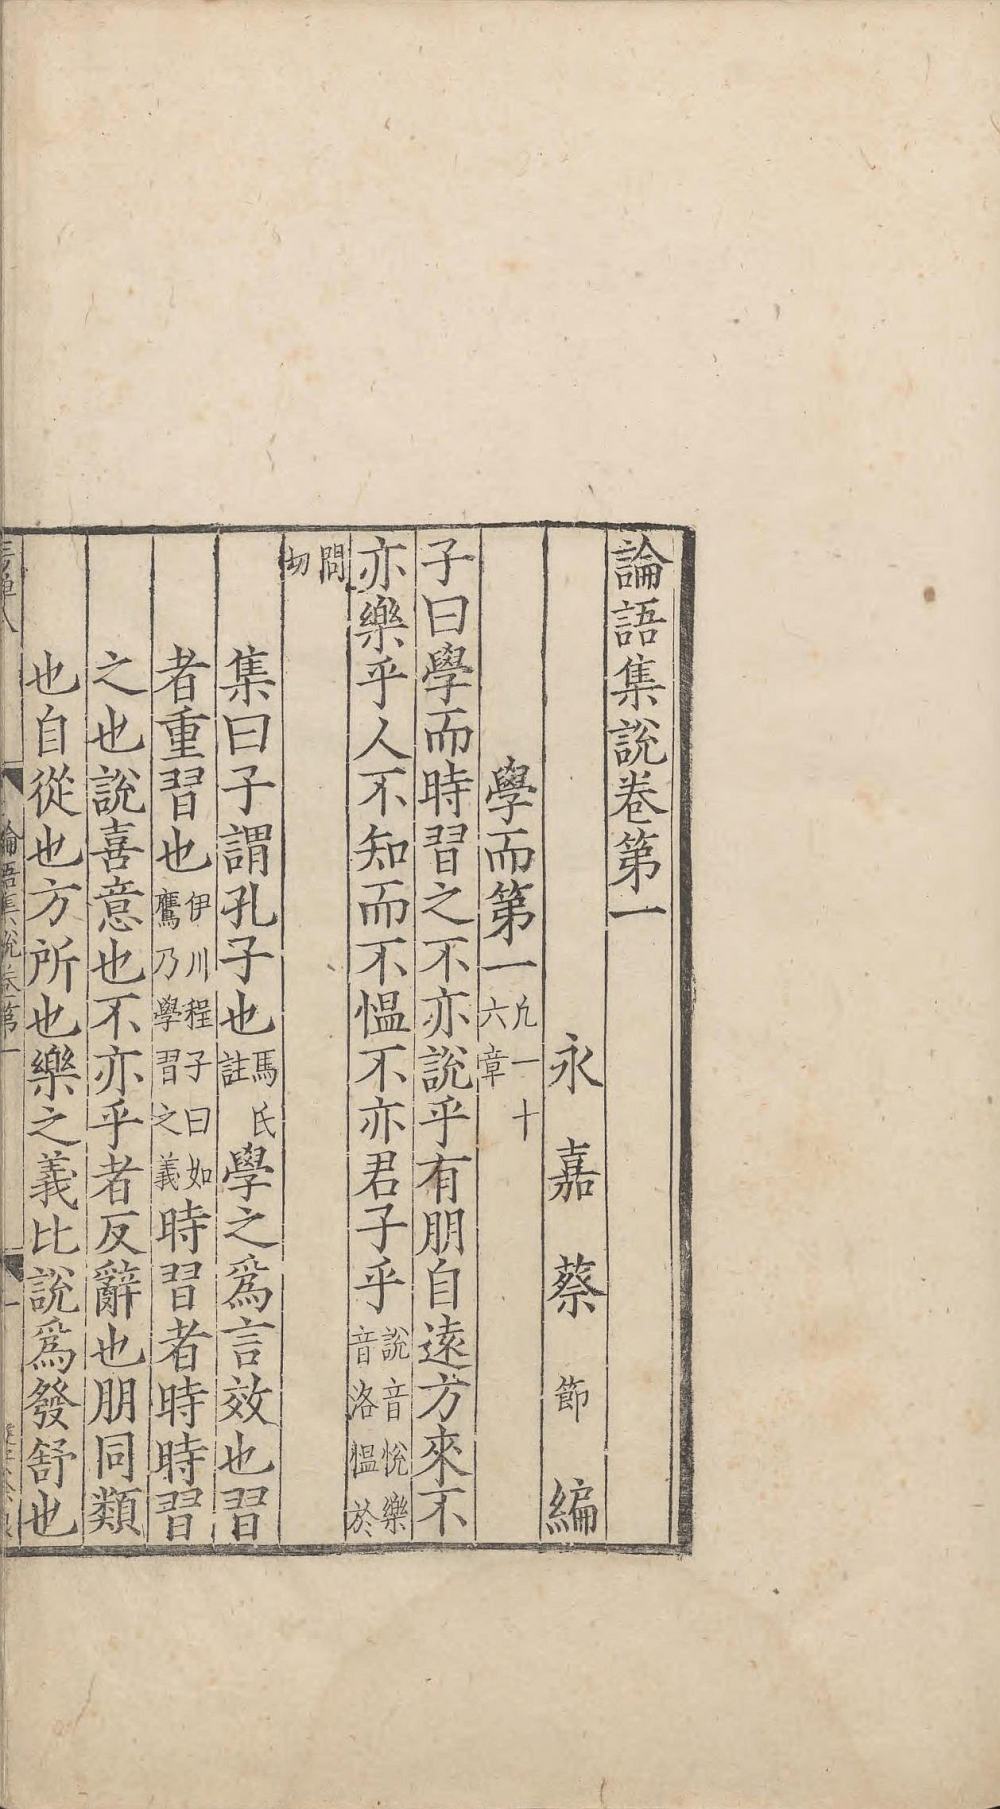 論語集說卷第一
永嘉蔡節編
學而第一凡一十六章
子曰學而時習之不亦說乎有朋自遠方來不
亦樂乎人不知而不慍不亦君子乎說音悅樂音洛慍於
問切
集曰子謂孔子也馬氏註學之爲言效也習
者重習也伊川程子曰如鷹乃學習之義時習者時時習
之也說喜意也不亦乎者反辭也朋同類
也自從也方所也樂之義比說爲發舒也
論語集說卷第一
一